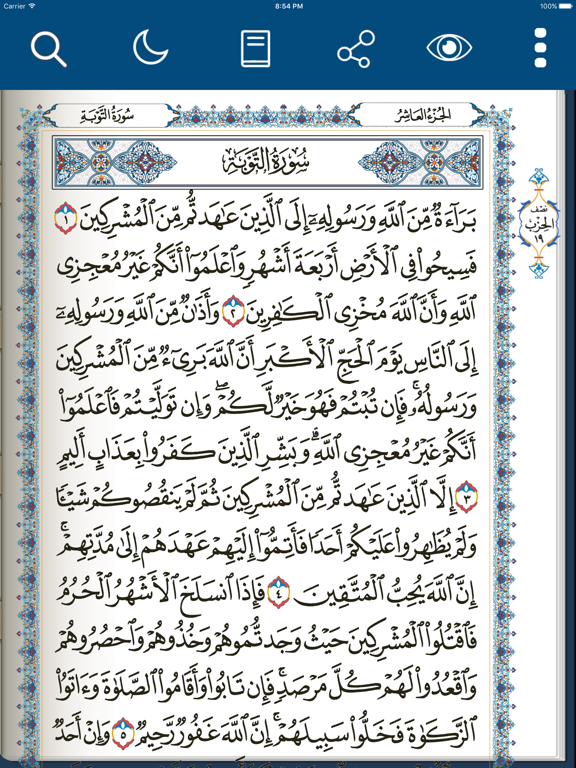 Carrier 8:54 PM 100%
سُورَةُ التَّوْبَةِ الجُزْءُ العَاشِرُ
سُورَةُ التَّوْبَةِ
نصف
الحزب
١٩
بَرَآءَةٌ مِّنَ ٱللَّهِ وَرَسُولِهِۦٓ إِلَى ٱلَّذِينَ عَٰهَدتُّم مِّنَ ٱلْمُشْرِكِينَ ١
فَسِيحُوا۟ فِى ٱلْأَرْضِ أَرْبَعَةَ أَشْهُرٍ وَٱعْلَمُوٓا۟ أَنَّكُمْ غَيْرُ مُعْجِزِى
ٱللَّهِ وَأَنَّ ٱللَّهَ مُخْزِى ٱلْكَٰفِرِينَ ٢ وَأَذَٰنٌ مِّنَ ٱللَّهِ وَرَسُولِهِۦٓ
إِلَى ٱلنَّاسِ يَوْمَ ٱلْحَجِّ ٱلْأَكْبَرِ أَنَّ ٱللَّهَ بَرِىٓءٌ مِّنَ ٱلْمُشْرِكِينَ
وَرَسُولُهُۥ ۚ فَإِن تُبْتُمْ فَهُوَ خَيْرٌ لَّكُمْ ۖ وَإِن تَوَلَّيْتُمْ فَٱعْلَمُوٓا۟
أَنَّكُمْ غَيْرُ مُعْجِزِى ٱللَّهِ ۗ وَبَشِّرِ ٱلَّذِينَ كَفَرُوا۟ بِعَذَابٍ أَلِيمٍ
٣ إِلَّا ٱلَّذِينَ عَٰهَدتُّم مِّنَ ٱلْمُشْرِكِينَ ثُمَّ لَمْ يَنقُصُوكُمْ شَيْـًٔا
وَلَمْ يُظَٰهِرُوا۟ عَلَيْكُمْ أَحَدًا فَأَتِمُّوٓا۟ إِلَيْهِمْ عَهْدَهُمْ إِلَىٰ مُدَّتِهِمْ ۚ
إِنَّ ٱللَّهَ يُحِبُّ ٱلْمُتَّقِينَ ٤ فَإِذَا ٱنسَلَخَ ٱلْأَشْهُرُ ٱلْحُرُمُ
فَٱقْتُلُوا۟ ٱلْمُشْرِكِينَ حَيْثُ وَجَدتُّمُوهُمْ وَخُذُوهُمْ وَٱحْصُرُوهُمْ
وَٱقْعُدُوا۟ لَهُمْ كُلَّ مَرْصَدٍ ۚ فَإِن تَابُوا۟ وَأَقَامُوا۟ ٱلصَّلَوٰةَ وَءَاتَوُا۟
ٱلزَّكَوٰةَ فَخَلُّوا۟ سَبِيلَهُمْ ۚ إِنَّ ٱللَّهَ غَفُورٌ رَّحِيمٌ ٥ وَإِنْ أَحَدٌ